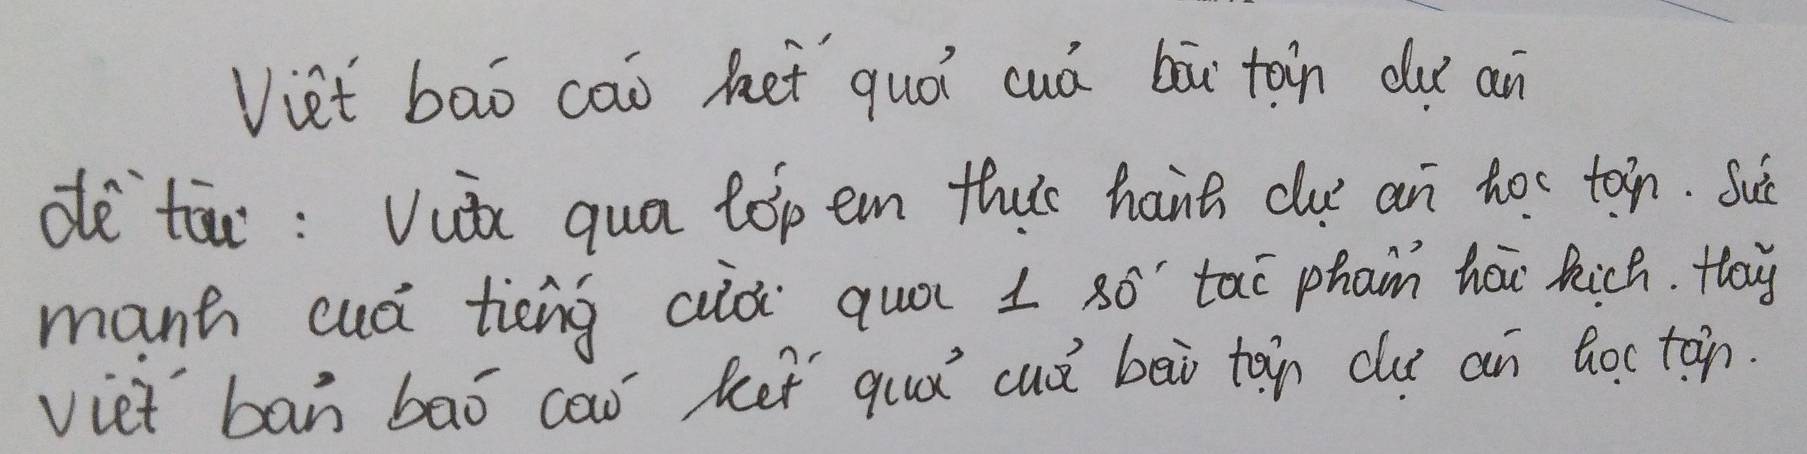 Viết báo cáo kết quả của bài tập dự án
đề tài : Vừa qua lớp em thực hành dự án học tập. Sức
mạnh của tiếng cười qua 1 số tác phẩm hài kịch. Hãy
viết bản báo cáo kết quả của bài tập dự án học tập.